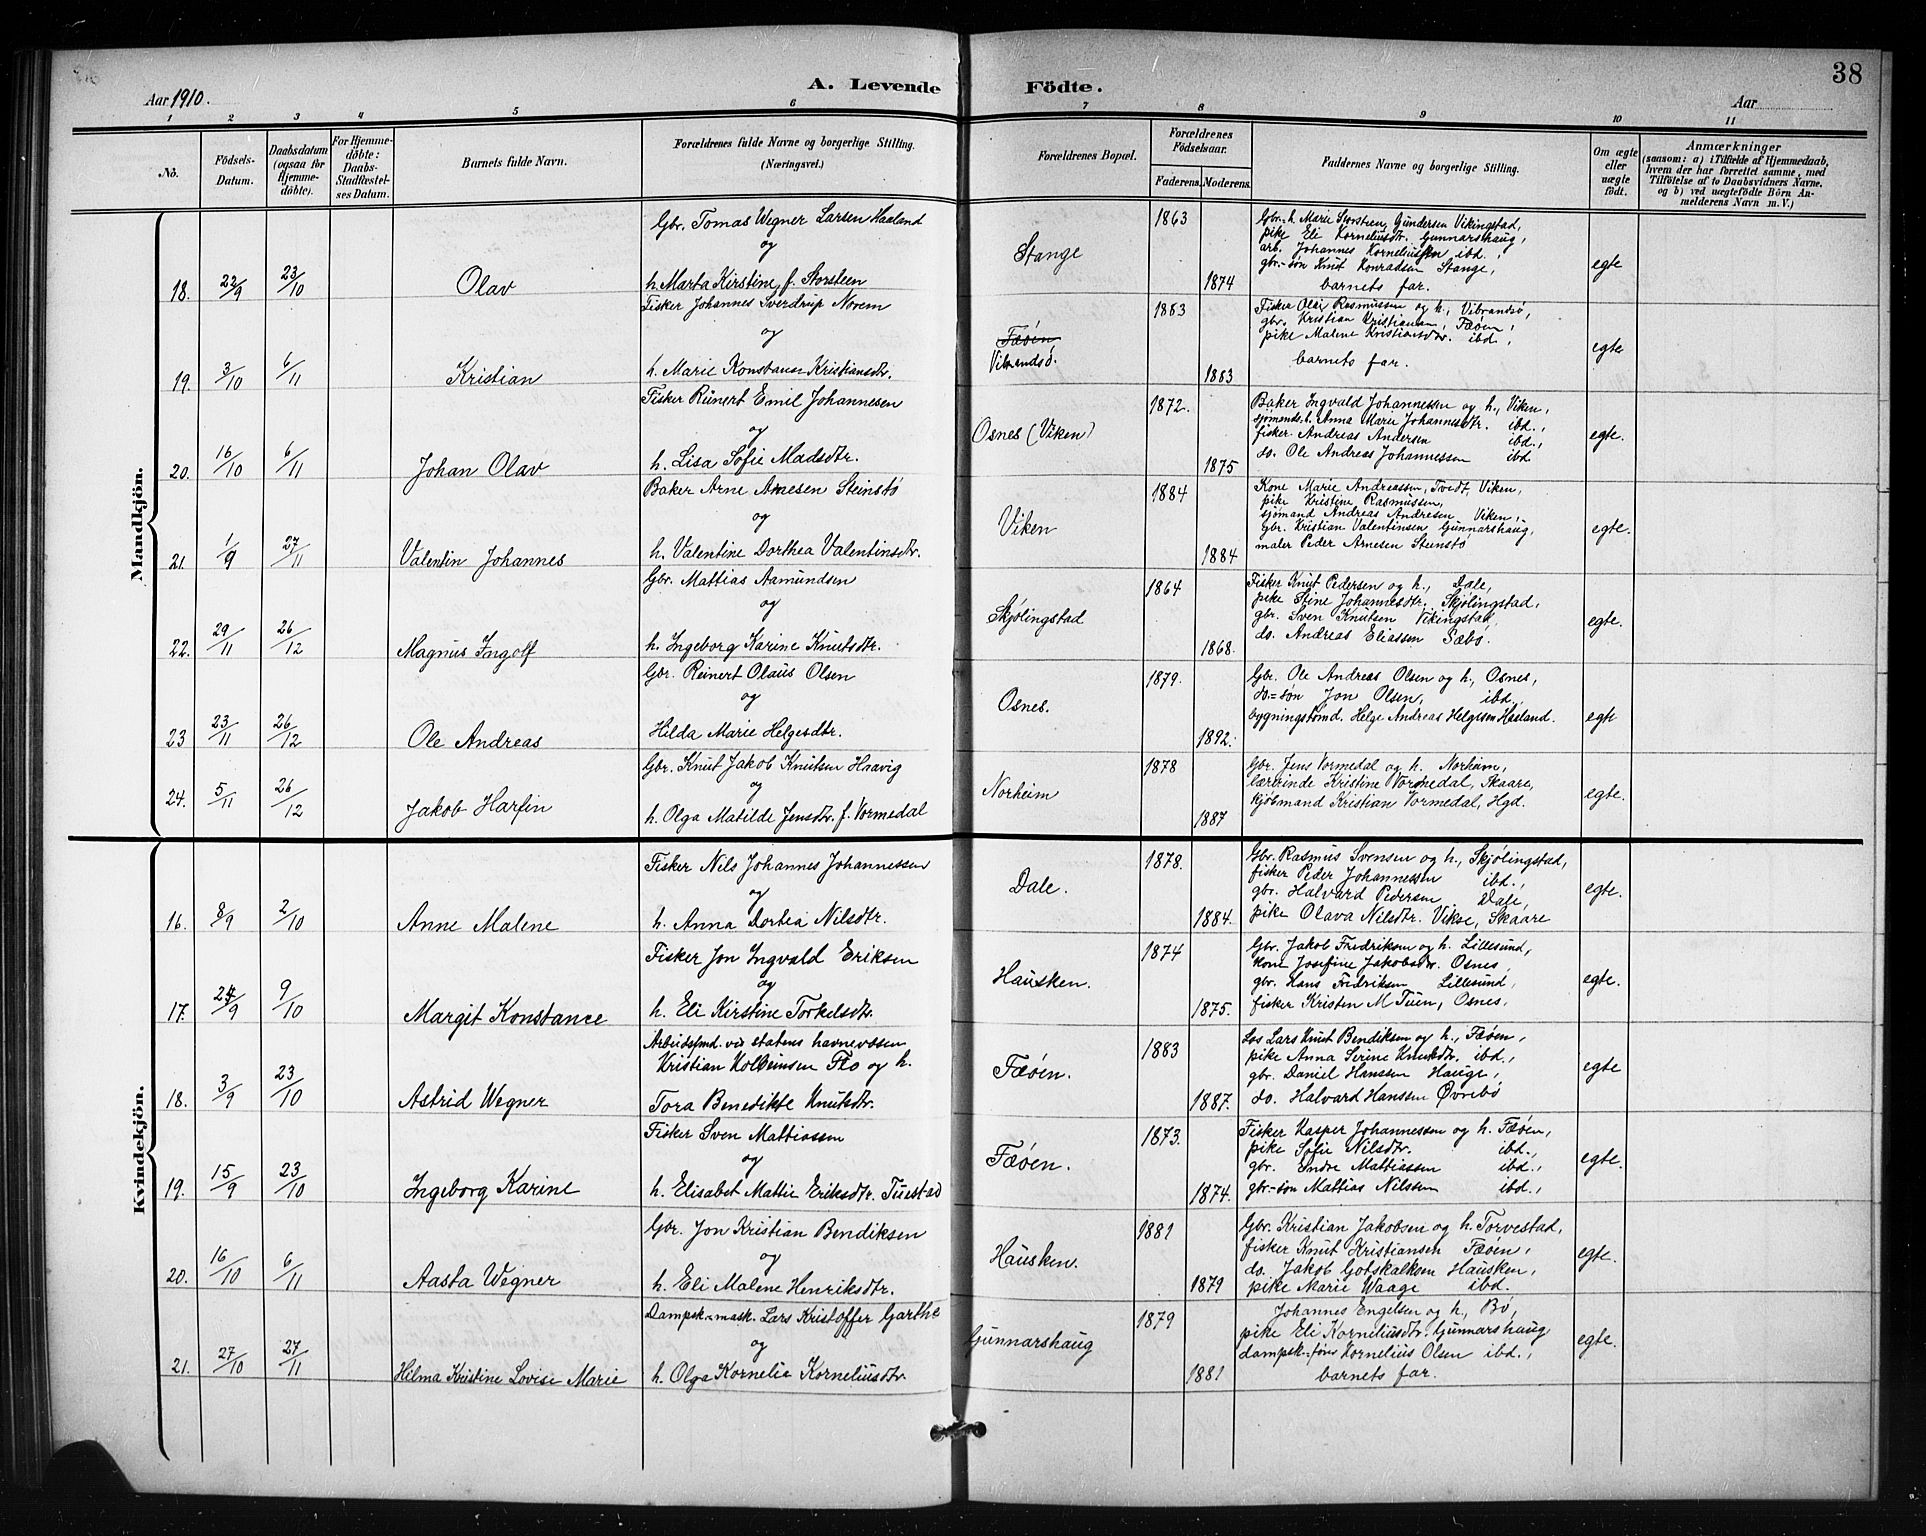 38
Aar 1910.
A. Levende Födte.
Aar
1 2 3 4 5 6 7 8 9 10 11
No.
Födsels-Datum.
Daabsdatum (ogsaa for Hjemme-döbte).
For Hjemme-döbte: Daabs-Stadfæstel-ses Datum.
Barnets fulde Navn.
Forældrenes fulde Navne og borgerlige Stilling. (Næringsvei.)
Forældrenes Bopæl.
Forældrenes Födselsaar.
Faderens. Moderens.
Faddernes Navne og borgerlige Stilling.
Om ægte eller uægte födt.
Anmærkninger
(saasom: a) i Tilfælde af Hjemmedaab,
hvem der har forrettet samme, med
Tilföielse af to Daabsvidners Navne.
og b) ved uægtefödte Börn An-
melderens Navn m. V.)
Mandkjön.
18. 22/9 23/10 Olav
Gbr. Tomas Wegner Larsen Haaland
og
h. Marta Kirstine, f. Storsteen
Stange
1863
1874
Gbr. h. Marie Storsteen, Gundersen Vikingstad,
pike Eli Korneliusdtr. Gunnarshaug,
arb. Johannes Korneliussen ibd.,
gbr.-søn Knut Konradsen Stange,
barnets far.
egte
19. 3/10 6/11 Kristian
Fisker Johannes Sverdrup Norem
og
h. Marie Konstanse Kristiansdtr.
Fæøen
Vibrandsø.
1883
1883
Fisker Olai Rasmussen og h., Vibrandsø,
gbr. Kristian Kristiansen, Fæøen,
pike Malene Kristiansdtr. ibd.,
barnets far.
egte
20. 16/10 6/11 Johan Olav
Fisker Reinert Emil Johannesen
og
h. Lisa Sofie Madsdtr.
Osnes (Viken)
1872.
1875
Baker Ingvald Johannessen og h., Viken,
sjømands h. Anna Marie Johannesdtr. ibd.,
fisker Andreas Andersen ibd.,
do. Ole Andreas Johannessen ibd
egte.
21. 1/9 27/11 Valentin Johannes
Baker Arne Arnesen Steinstø
og
h. Valentine Dorthea Valentinsdtr.
Viken
1884
1884
Kone Marie Andreassen, Tvedt, Viken,
pike Kristine Rasmussen,
sjømand Andreas Andresen Viken,
Gbr. Kristian Valentinsen Gunnarshaug,
maler Peder Arnesen Steinstø
egte.
22. 29/11 26/12 Magnus Ingolf
Gbr. Mattias Aamundsen
og
h. Ingeborg Karine Knutsdtr.
Skjølingstad
1864
1868.
Fisker Knut Pedersen og h., Dale,
pike Stine Johannesdtr. Skjølingstad,
gbr. Sven Knutsen Vikingstad,
do. Andreas Eliassen Sæbø.
egte.
23 23/11 26/12 Ole Andreas
Gbr. Reinert Olaus Olsen
og
Hilda Marie Helgesdtr.
Osnes.
1879.
1892.
Gbr. Ole Andreas Olsen og h., Osnes,
do.-søn Jon Olsen, ibd,
bygningstømd. Helge Andreas Helgesen Haaland.
egte
24. 5/11 26/12 Jakob Harfin
Gbr. Knut Jakob Knutsen Haavig
og
h. Olga Matilde Jensdtr. f. Vormedal
Norheim
1878
1887
Gbr. Jens Vormedal og h. Norheim,
lærerinde Kristine Vormedal, Skaare,
kjøbmand Kristian Vormedal, Hgd.
egte.
Kvindekjön.
16. 8/9 2/10 Anne Malene
Fisker Nils Johannes Johannessen
og
h. Anna Dortea Nilsdtr.
Dale.
1878.
1884.
Gbr. Rasmus Svensen og h., Skjølingstad,
fisker Peder Johannessen ibd.,
gbr. Halvard Pedersen Dale,
pike Olava Nilsdtr. Vikse, Skaare
egte.
17. 24/9 9/10 Margit Konstance
Fisker Jon Ingvald Eriksen
og
h. Eli Kirstine Torkelsdtr.
Hausken.
1874
1875.
Gbr. Jakob Fredriksen og h. Lillesund,
kone Josefine Jakobsdtr. Osnes,
gbr. Hans Fredriksen Lillesund,
fisker Kristen M Tuen, Osnes,
egte.
18. 3/9 23/10 Astrid Wegner
Arbeidsfmd. ved statens havnevæsen
Kristian Kolbeinsen Flo og h.
Tora Benedikte Knutsdtr.
Fæøen.
1883
1887.
Los Lars Knut Bendiksen og h., Fæøen,
pike Anna Serine Knutsdtr. ibd.,
gbr. Daniel Hanssen Hauge,
do. Halvard Hanssen Øvrebø
egte
19. 15/9 23/10 Ingeborg Karine
Fisker Sven Mattiassen
og
h. Elisabet Mattie Eriksdtr. Tuestad
Fæøen.
1873.
1874.
Fisker Kasper Johannessen og h. Fæøen,
pike Sofie Nilsdtr. ibd.,
gbr. Endre Mattiassen ibd.,
gbr.-søn Mattias Nilssen ibd.,
egte.
20. 16/10 6/11 Aasta Wegner
Gbr. Jon Kristian Bendiksen
og
h. Eli Malene Henriksdtr.
Hausken.
1881
1879
Gbr. Kristian Jakobsen og h. Torvestad,
fisker Knut Kristiansen Fæøen,
do. Jakob Gotskalksen Hausken,
pike Marie Waage ibd.
egte.
21. 27/10 27/11 Hilma Kristine Lovise Marie
Dampsk.-mask. Lars Kristoffer Garthe
og
h. Olga Kornelia Korneliusdtr.
Gunnarshaug
1879
1881
Johannes Engelsen og h, Bø,
pike Eli Korneliusdtr. Gunnarshaug
dampsk.-føver Kornelius Olsen ibd.,
barnets far.
egte.